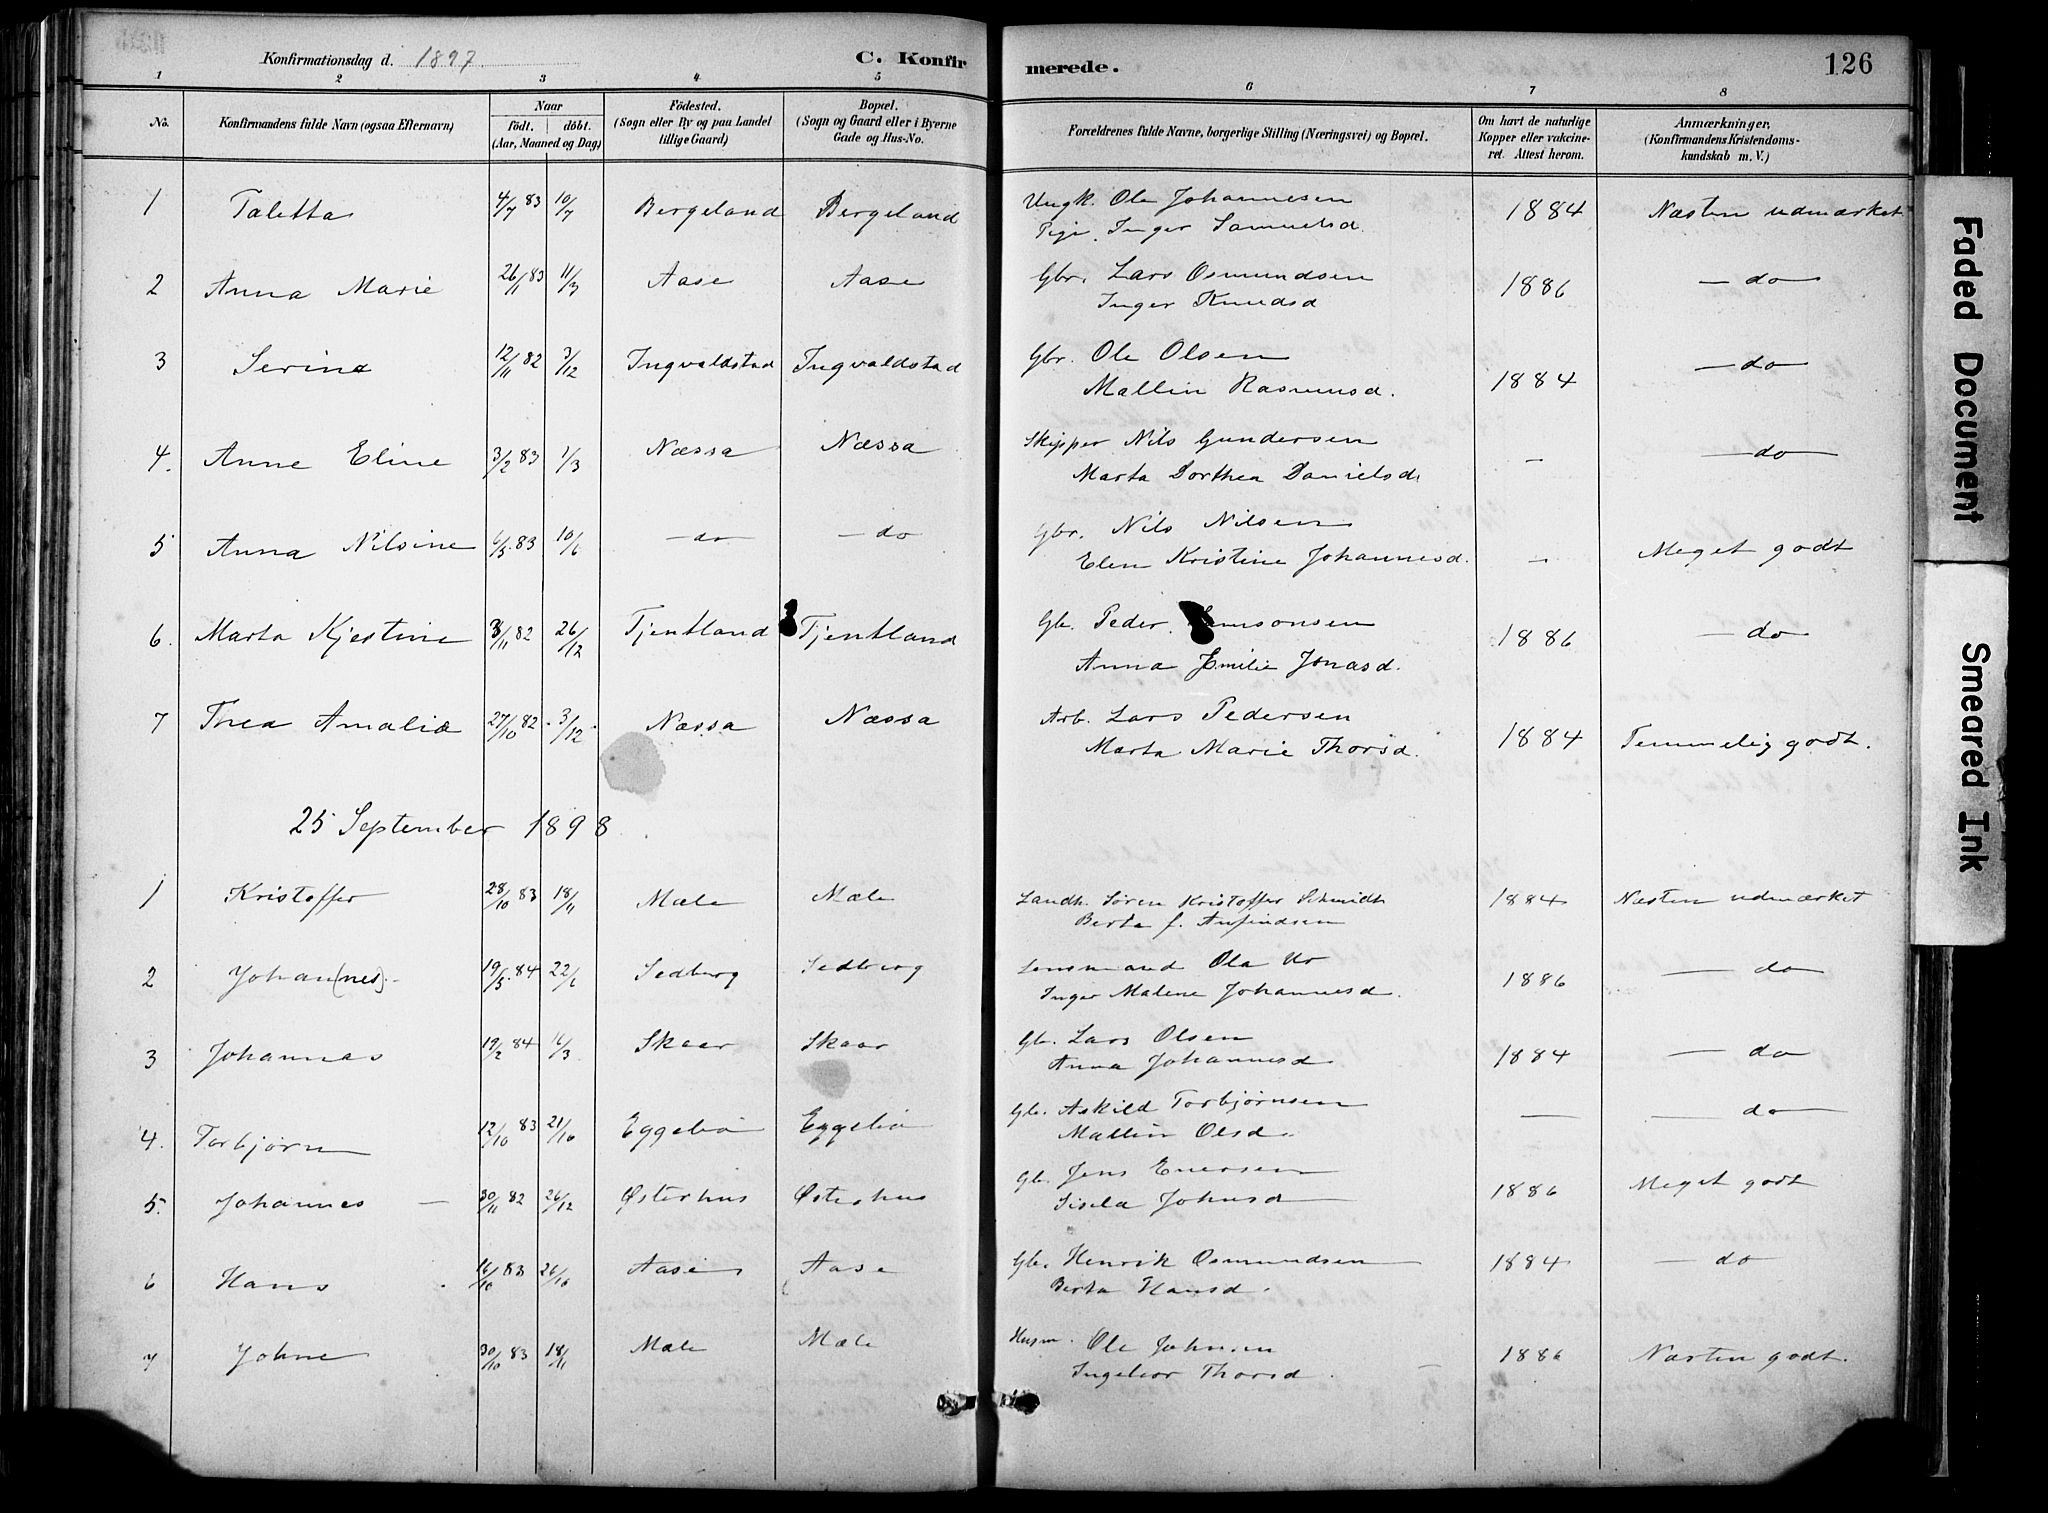 Konfirmationsdag d. 1897. C. Konfirmerede. 126
1 2 3 4 5 6 7 8
No. Konfirmandens fulde Navn (ogsaa Efternavn) Naar Födt. döbt. (Aar, Maaned og Dag) Födested. (Sogn eller By og paa Landet tillige Gaard) Bopæl. (Sogn og Gaard eller i Byerne Gade og Hus-No. Forældrenes fulde Navne, borgerlige Stilling (Næringsvei) og Bopæl. Om havt de naturlige Kopper eller vakcineret. Attest herom. Anmærkninger, (Konfirmandens Kristendomskundskab m. V.)
1 Taletta 4/7 83 10/7 Bergeland Bergeland Ungk. Ole Johannesen 1884 Næsten udmærket
Pige. Inger Samuelsd.
2 Anna Marie 26/1 83 11/3 Aase Aase Gbr. Lars Osmundsen 1886 — do —
Inger Knudsd
3 Serine 12/11 82 3/12 Ingvaldstad Ingvaldstad Gbr. Ole Olsen 1884 — do —
Mallin Rasmusd.
4. Anne Eline 3/2 83 1/3 Næssa Næssa Skipper Nils Gundersen — — do —
Marta Dorthea Danielsd.
5 Anna Nilsine 6/5 83 10/6 — do — do Gbr. Nils Nilsen — Meget godt
Elen Kristine Johannesd.
6. Marta Kjestine 3/11 82 26/12 Tjentland Tjentland Gb. Peder Simonsen 1886 — do —
Anna Emilie Jonasd.
7 Thea Amalie 27/10 82 3/12 Næssa Næssa Arb. Lars Pedersen 1884 Temmelig godt.
Marta Marie Thorsd.
25 September 1898
1 Kristoffer 28/10 83 18/11 Mæle Mæle Landh. Søren Kristoffer Schmidt 1884 Næsten udmærket
Berta f. Anfindsen
2 Johan(nes). 19/5 84 22/6 Sedberg Sedberg Lensmand Ola Ur 1886 — do
Inger Malene Johannesd.
3 Johannes 19/2 84 16/3 Skaar Skaar Gb. Lars Olsen 1884 — do
Anna Johannesd
4. Torbjørn 12/10 83 21/10 Eggebø Eggebø Gb. Askild Torbjørnsen — — do
Mallin Olsd.
5. Johannes — 30/11 82 26/12 Østerhus Østerhus Gb. Jens Enersen 1886 Meget godt
Sisela Johnsd
6 Hans 16/10 83 26/10 Aase Aase Gb. Henrik Osmundsen 1884 — do
Berta Hansd.
7 Johne 30/10 83 18/11 Mæle Mæle Husm. Ole Johnsen 1886 Næsten godt.
Ingebor Thorsd.
Faded Document
Smeared Ink